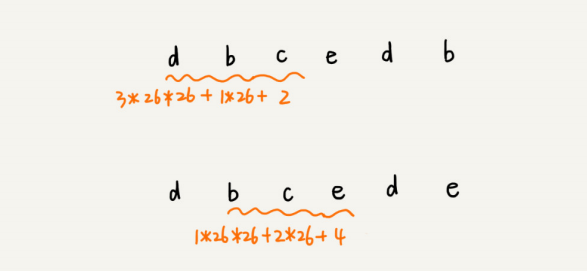 d b c e d b
3*26*26+1*26+2
d b c e d e
1*26*26+2*26+4